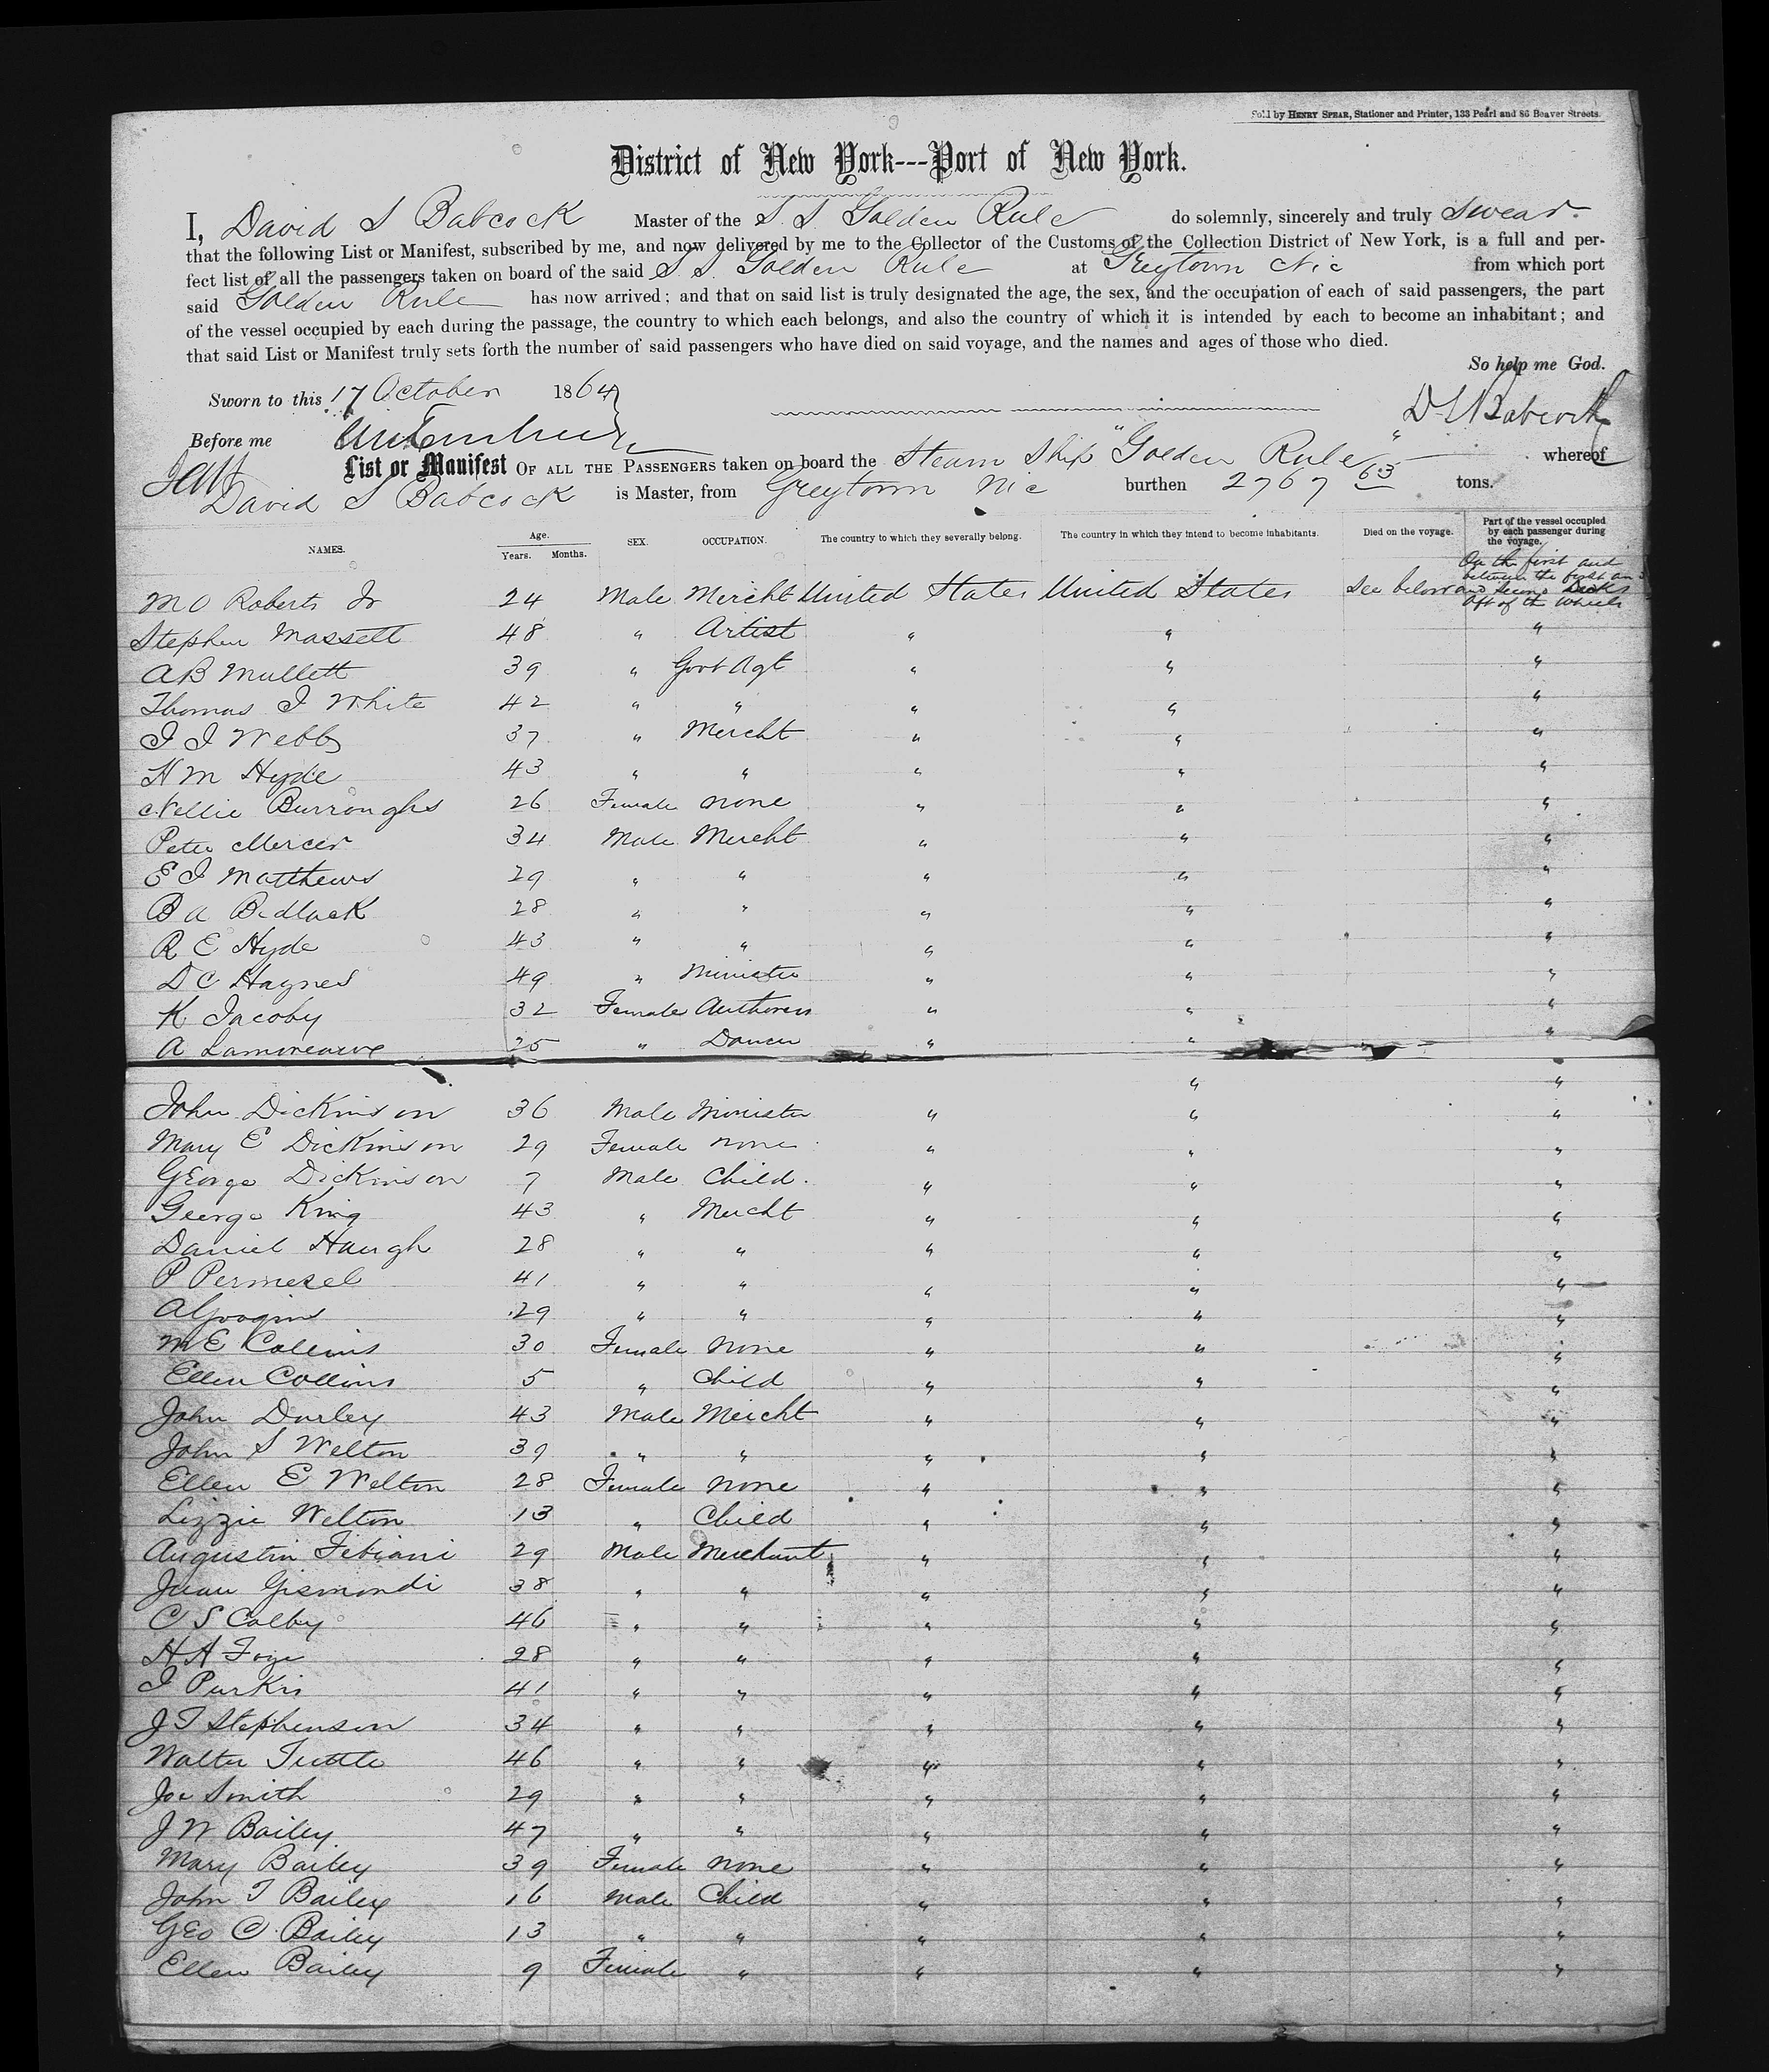 Sold by HENRY SPEAR, Stationer and Printer, 133 Pearl and 86 Beaver Streets.
District of New York---Port of New York.
I, David S Babcock Master of the S. S. Golden Rule do solemnly, sincerely and truly Swear.
that the following List or Manifest, subscribed by me, and now delivered by me to the Collector of the Customs of the Collection District of New York, is a full and per-
fect list of all the passengers taken on board of the said S. S. Golden Rule at Greytown Nic from which port
said Golden Rule has now arrived; and that on said list is truly designated the age, the sex, and the occupation of each of said passengers, the part
of the vessel occupied by each during the passage, the country to which each belongs, and also the country of which it is intended by each to become an inhabitant; and
that said List or Manifest truly sets forth the number of said passengers who have died on said voyage, and the names and ages of those who died.
So help me God.
Sworn to this 17 October 1864
D S Babcock
Before me
List or Manifest OF ALL THE PASSENGERS taken on board the Steam Ship "Golden Rule" whereof
David S Babcock is Master, from Greytown Nic burthen 2767 63 tons.
NAMES. Age. Years. Months. SEX. OCCUPATION. The country to which they severally belong. The country in which they intend to become inhabitants. Died on the voyage. Part of the vessel occupied by each passenger during the voyage.
M O Roberts Jr 24 Male Mercht United States United States See below On the first and between the first and second Decks Aft of the Wheels
Stephen Massett 48 " Artist " " "
A B Mullett 39 " Govt Agt " " "
Thomas J White 42 " " " " "
J J Webb 37 " Mercht " " "
H M Hyde 43 " " " " "
Nellie Burroughs 26 Female none " " "
Peter Mercer 34 Male Mercht " " "
E J Matthews 29 " " " " "
B A Bedlack 28 " " " " "
R E Hyde 43 " " " " "
D C Haynes 49 " Minister " " "
K Jacoby 32 Female Authoress " " "
A Lamoreauve 25 " Dancer " " "
" "
John Dickinson 36 Male Minister " " "
Mary E Dickinson 29 Female none " " "
George Dickinson 7 Male Child. " " "
George King 43 " Mercht " " "
Daniel Haugh 28 " " " " "
P Permezel 41 " " " " "
A Googins 29 " " " " "
M E Collins 30 Female none " " "
Ellen Collins 5 " Child " " "
John Durley 43 Male Mercht " " "
John S Welton 39 " " " " "
Ellen E Welton 28 Female none " " "
Lizzie Welton 13 " Child " " "
Augustin Fibiani 29 Male Merchant " " "
Juan Gismondi 38 " " " " "
C S Colby 46 " " " " "
H A Foye 28 " " " " "
J Purkis 41 " " " " "
J T Stephenson 34 " " " " "
Walter Tuttle 46 " " " " "
Joe Smith 29 " " " " "
J W Bailey 47 " " " " "
Mary Bailey 39 Female none " " "
John T Bailey 16 Male Child " " "
Geo C Bailey 13 " " " " "
Ellen Bailey 9 Female " " " "